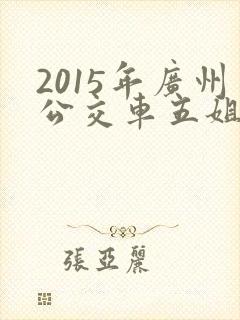 2015年廣州
公交車五姐
張亞麗